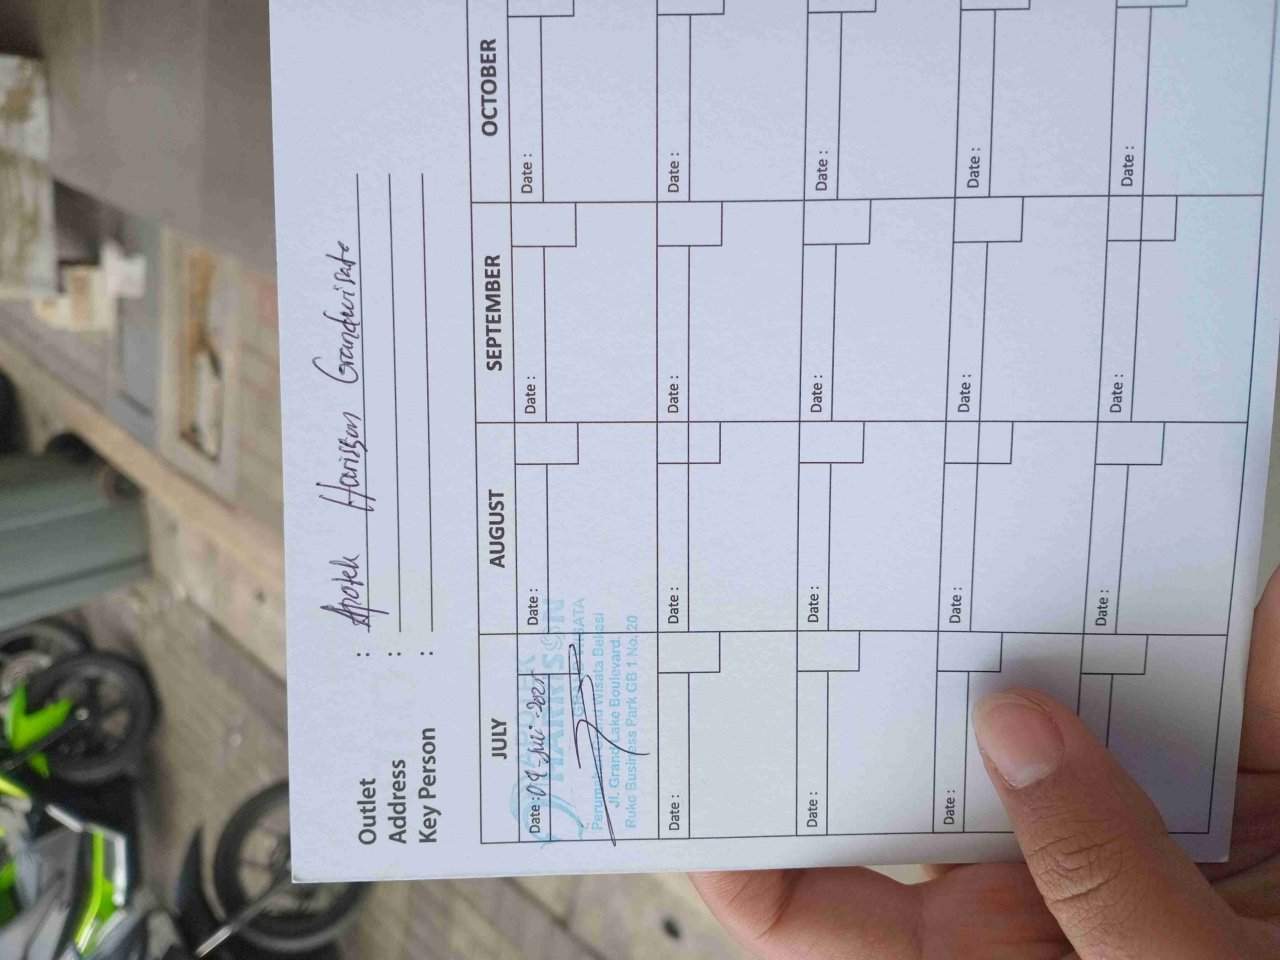 Outlet : Apotek Harisson Grandwisata
Address :
Key Person :
JULY AUGUST SEPTEMBER OCTOBER
Date : 09 Juli 2025 Date : Date : Date :
HARRISON
GRAND WISATA
Wisata Bekasi
Jl. Grand Lake Boulevard.
Ruko Business Park GB 1 No. 20
Date : Date : Date : Date :
Date : Date : Date : Date :
Date : Date : Date : Date :
Date : Date : Date :